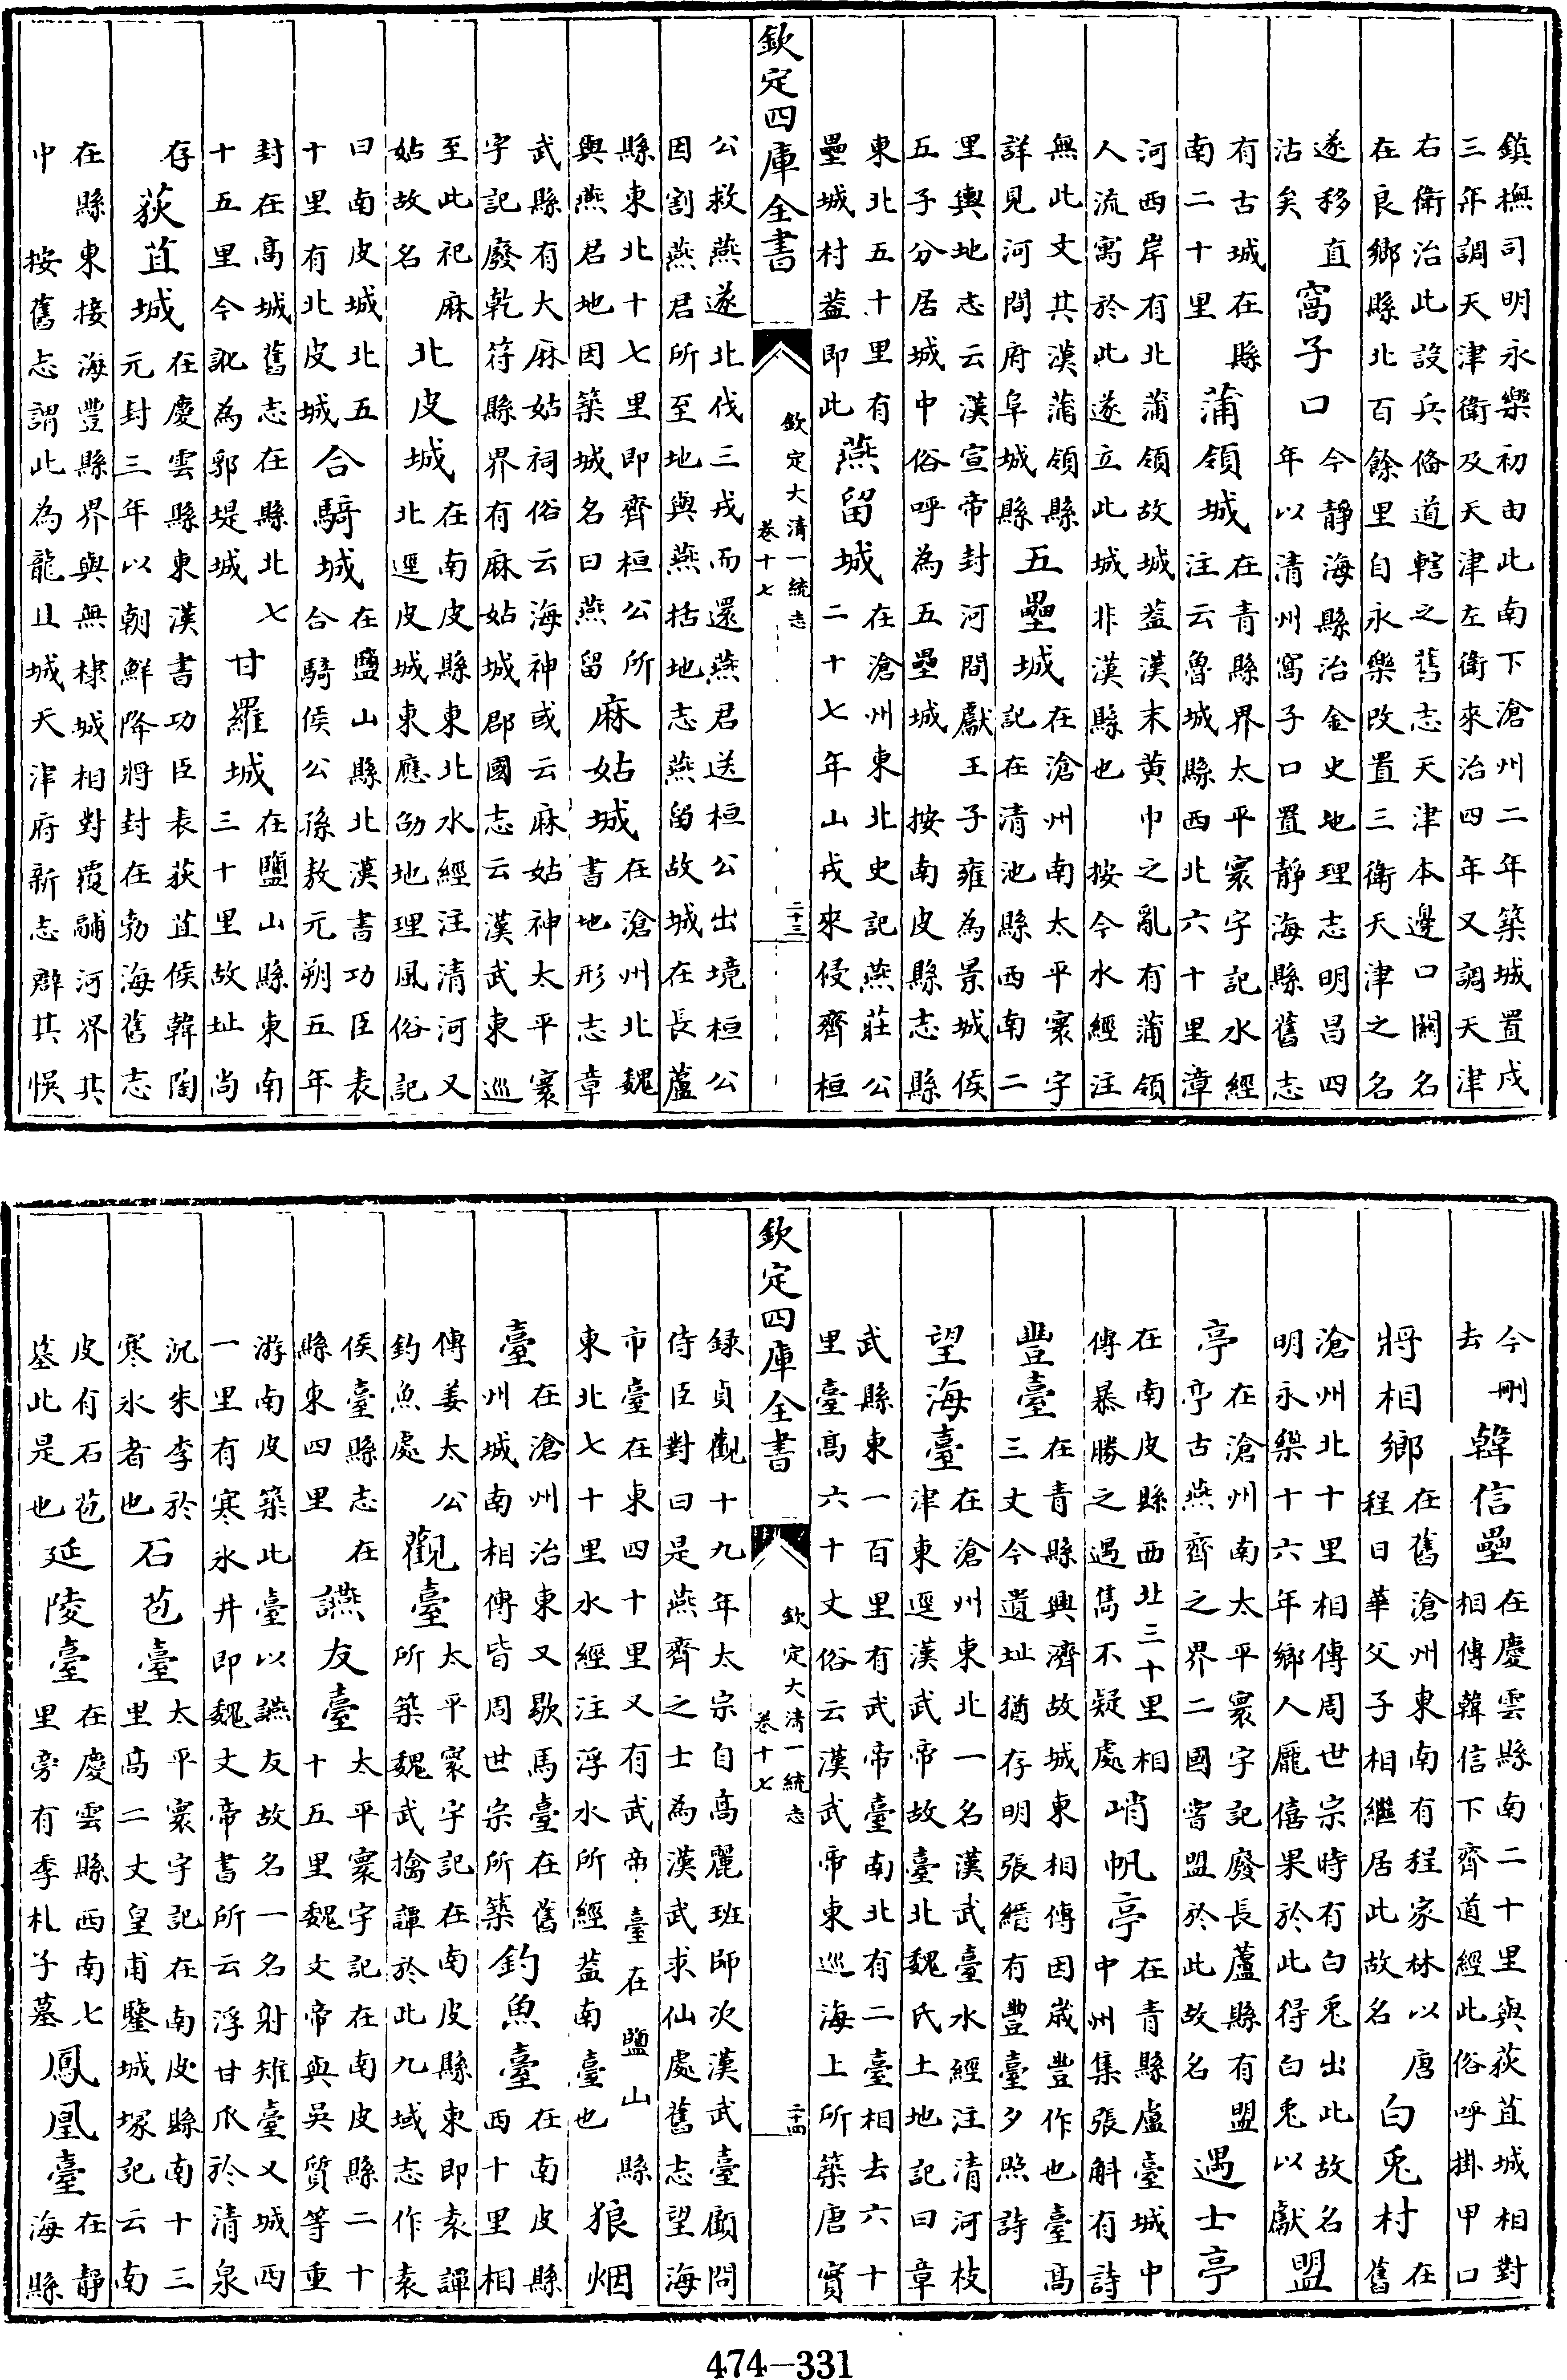 鎮撫司明永樂初由此南下滄州二年築城置戍
三年調天津衛及天津左衛來治四年又調天津
右衛治此設兵備道轄之舊志天津本邊口關名
在良鄉縣北百餘里自永樂改置三衛天津之名
遂移直
沽矣
窩子口
今靜海縣治金史地理志明昌四
年以清州窩子口置靜海縣舊志
有古城在縣
南二十里
蒲領城
在青縣界太平寰宇記水經
注云魯城縣西北六十里章
河西岸有北蒲領故城葢漢末黄巾之亂有蒲領
人流寓於此遂立此城非漢縣也 按今水經注
無此文其漢蒲領縣
詳見河間府阜城縣
五壘城
在滄州南太平寰宇
記在清池縣西南二
里輿地志云漢宣帝封河間獻王子雍為景城侯
五子分居城中俗呼為五壘城 按南皮縣志縣
東北五十里有
壘城村葢即此
燕留城
在滄州東北史記燕莊公
二十七年山戎來侵齊桓
公救燕遂北伐三戎而還燕君送桓公出境桓公
因割燕君所至地與燕括地志燕留故城在長蘆
縣東北十七里即齊桓公所
與燕君地因築城名曰燕留
麻姑城
在滄州北魏
書地形志章
武縣有大麻姑祠俗云海神或云麻姑神太平寰
宇記廢乾符縣界有麻姑城郡國志云漢武東巡
至此祀麻
姑故名
北皮城
在南皮縣東北水經注清河又
北逕皮城東應劭地理風俗記
曰南皮城北五
十里有北皮城
合騎城
在鹽山縣北漢書功臣表
合騎侯公孫敖元朔五年
封在高城舊志在縣北七
十五里今訛為郭堤城
甘羅城
在鹽山縣東南
三十里故址尚
存
荻苴城
在慶雲縣東漢書功臣表荻苴侯韓陶
元封三年以朝鮮降將封在勃海舊志
在縣東接海豐縣界與無棣城相對覆鬴河界其
中 按舊志謂此為龍且城天津府新志辟其悞
欽定四庫全書
欽定大清一統志
卷十七
二十三
今刪
去
韓信壘
在慶雲縣南二十里與荻苴城相對
相傳韓信下齊道經此俗呼掛甲口
將相鄉
在舊滄州東南有程家林以唐
程日華父子相繼居此故名
白兎村
在
舊
滄州北十里相傳周世宗時有白兎出此故名
明永樂十六年鄉人龎僖果於此得白兎以獻
盟
亭
在滄州南太平寰宇記廢長蘆縣有盟
亭古燕齊之界二國嘗盟於此故名
遇士亭
在南皮縣西北三十里相
傳暴勝之遇雋不疑處
峭帆亭
在青縣盧臺城中
中州集張斛有詩
豐臺
在青縣興濟故城東相傳因歲豐作也臺高
三丈今遺址猶存明張縉有豐臺夕照詩
望海臺
在滄州東北一名漢武臺水經注清河枝
津東逕漢武帝故臺北魏氏土地記曰章
武縣東一百里有武帝臺南北有二臺相去六十
里臺高六十丈俗云漢武帝東巡海上所築唐實
録貞觀十九年太宗自高麗班師次漢武臺顧問
侍臣對曰是燕齊之士為漢武求仙處舊志望海
市臺在東四十里又有武帝臺在鹽山縣
東北七十里水經注浮水所經葢南臺也
狼烟
臺
在滄州治東又歇馬臺在舊
州城南相傳皆周世宗所築
釣魚臺
在南皮縣
西十里相
傳姜太公
釣魚處
觀臺
太平寰宇記在南皮縣東即袁譚
所築魏武擒譚於此九域志作袁
侯臺縣志在
縣東四里
讌友臺
太平寰宇記在南皮縣二十
十五里魏文帝與吳質等重
游南皮築此臺以讌友故名一名射雉臺又城西
一里有寒氷井即魏文帝書所云浮甘瓜於清泉
沉朱李於
寒氷者也
石苞臺
太平寰宇記在南皮縣南十三
里高二丈皇甫鑒城塚記云南
皮有石苞
墓此是也
延陵臺
在慶雲縣西南七
里旁有季札子墓
鳳凰臺
在靜
海縣
欽定四庫全書
欽定大清一統志
卷十七
二十四
474-331